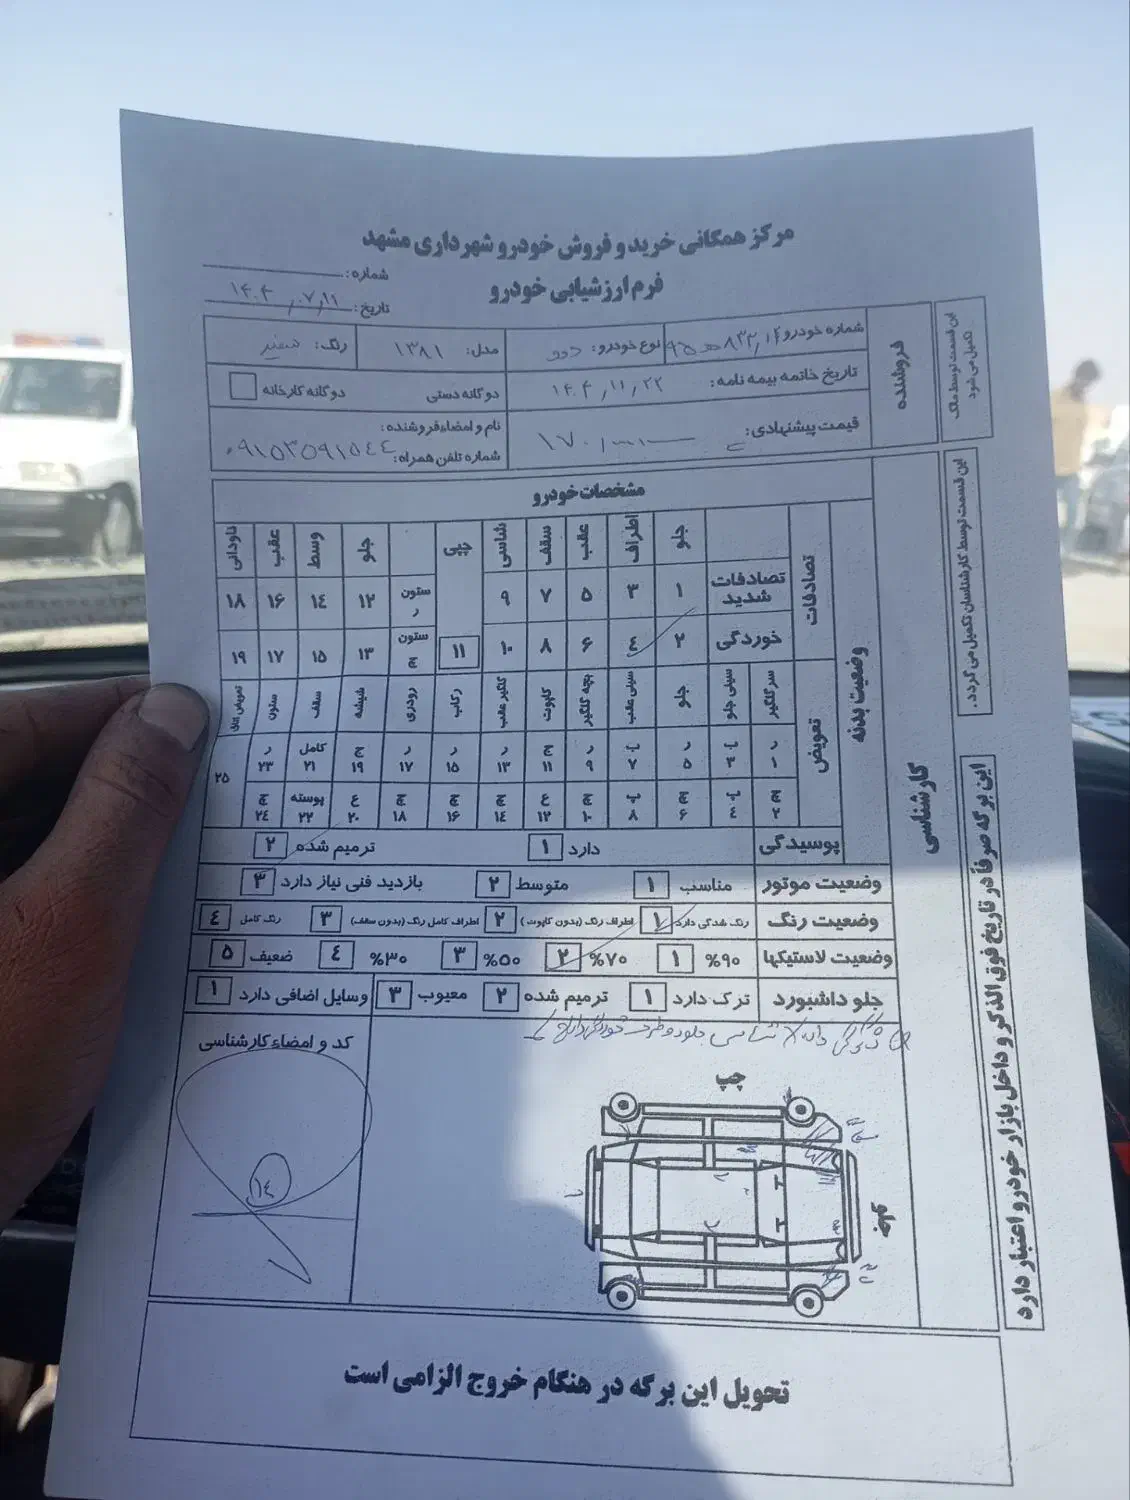 مرکز همگانی خرید و فروش خودرو شهرداری مشهد
فرم ارزشیابی خودرو
شماره:
تاریخ: ۱۴۰۴,۰۷,۱۱
این قسمت توسط مالک تکمیل می شود
فروشنده
شماره خودرو نوع خودرو: دوو مدل: ۱۳۸۱ رنگ: سفید
تاریخ خاتمه بیمه نامه: ۱۴۰۴,۱۱,۲۲ دوگانه دستی دوگانه کارخانه
قیمت پیشنهادی: نام و امضاء فروشنده:
شماره تلفن همراه: ۰۹۱۵۳۵۹۱۵۴۴
این قسمت توسط کارشناسان تکمیل می گردد.
کارشناسی
مشخصات خودرو
وضعیت بدنه
تصادفات
جلو اطراف عقب سقف شاسی پی جلو وسط عقب ناودانی
تصادفات شدید ۱ ۳ ۵ ۷ ۹ ستون ر ۱۲ ۱۴ ۱۶ ۱۸
خوردگی ۲ ۴ ۶ ۸ ۱۰ ۱۱ ستون چ ۱۳ ۱۵ ۱۷ ۱۹
تعویض
سرگلگیر سینی جلو جلو سینی عقب بچه گلگیر کاپوت گلگیر عقب رکاب رودری شیشه سقف ستون تعویض اتاق
ر ۱ ۳ ر ۵ ۷ ر ۹ ج ۱۱ ر ۱۳ ر ۱۵ ر ۱۷ ج ۱۹ کامل ۲۱ ر ۲۳ ۲۵
چ ۲ ۴ چ ۶ ۸ چ ۱۰ ع ۱۲ چ ۱۴ چ ۱۶ چ ۱۸ ع ۲۰ پوسته ۲۲ چ ۲۴
پوسیدگی دارد ۱ ترمیم شده ۲
وضعیت موتور مناسب ۱ متوسط ۲ بازدید فنی نیاز دارد ۳
وضعیت رنگ رنگ شدگی دارد ۱ اطراف رنگ (بدون کاپوت) ۲ اطراف کامل رنگ (بدون سقف) ۳ رنگ کامل ۴
وضعیت لاستیکها ۹۰% ۱ ۷۰% ۲ ۵۰% ۳ ۳۰% ۴ ضعیف ۵
جلو داشبورد ترک دارد ۱ ترمیم شده ۲ معیوب ۳ وسایل اضافی دارد ۱
کد و امضاء کارشناسی
۱۴
چپ
این برگه صرفاً در تاریخ فوق الذکر و داخل بازار خودرو اعتبار دارد
تحویل این برگه در هنگام خروج الزامی است